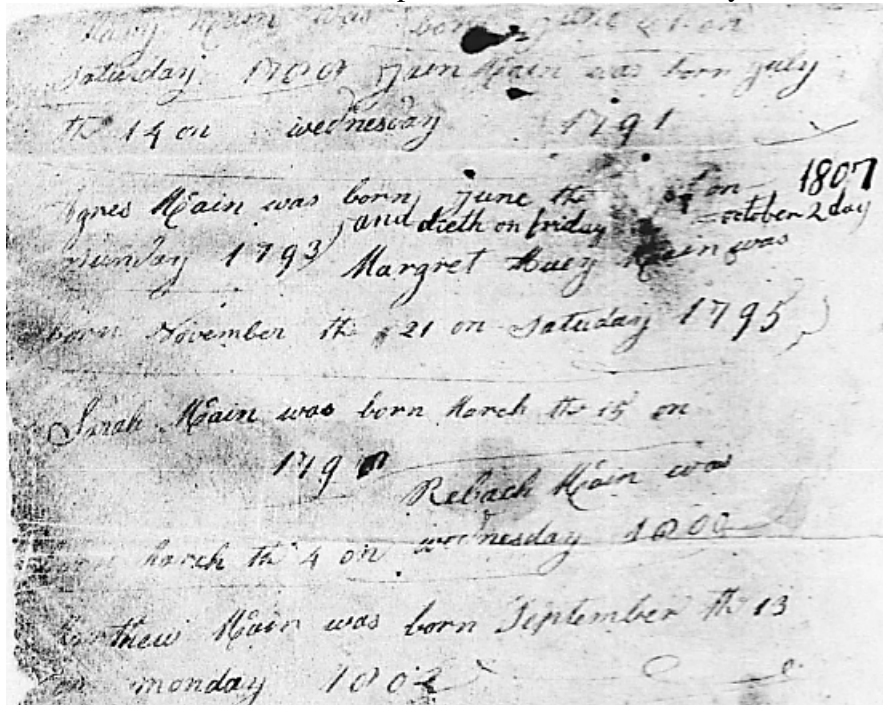 Mary McCain was born June
Saturday 1789 Jain McCain was born July
the 14 on wednesday 1791
Agnes McCain was born June the on 1807
and dieth on friday october 2 day
munday 1793 Margret Huey McCain was
born November the 21 on Satuday 1795
Sarah McCain was born March the 15 on
179
Reback McCain was
born March the 4 on wednesday 1800
McCain was born September the 13
on monday 1802